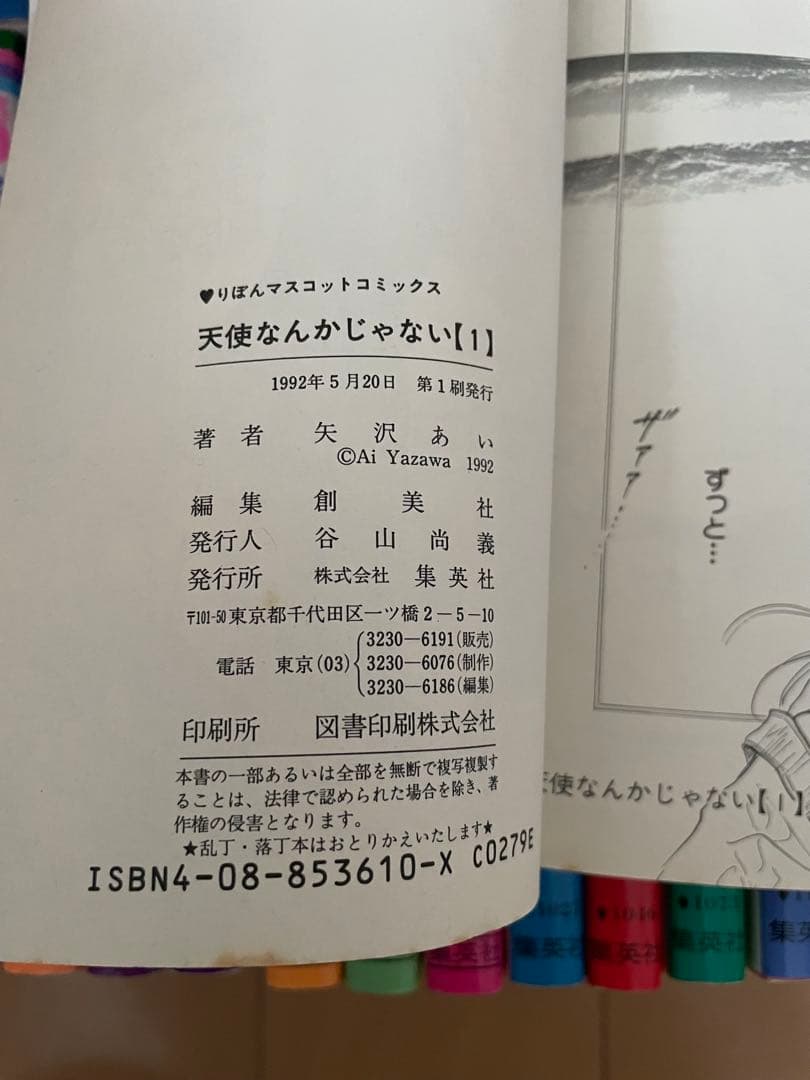 ♥りぼんマスコットコミックス
天使なんかじゃない【1】
1992年5月20日 第1刷発行
著者 矢沢あい
©Ai Yazawa 1992
編集 創美社
発行人 谷山尚義
発行所 株式会社 集英社
〒101-50 東京都千代田区一ツ橋2-5-10
電話 東京(03) 3230-6191(販売)
3230-6076(制作)
3230-6186(編集)
印刷所 図書印刷株式会社
本書の一部あるいは全部を無断で複写複製す
ることは、法律で認められた場合を除き、著
作権の侵害となります。
★乱丁・落丁本はおとりかえいたします★
ISBN4-08-853610-X C0279E
ザァァ…
ずっと…
天使なんかじゃない【1】
集英社
集英社
集英社
集英